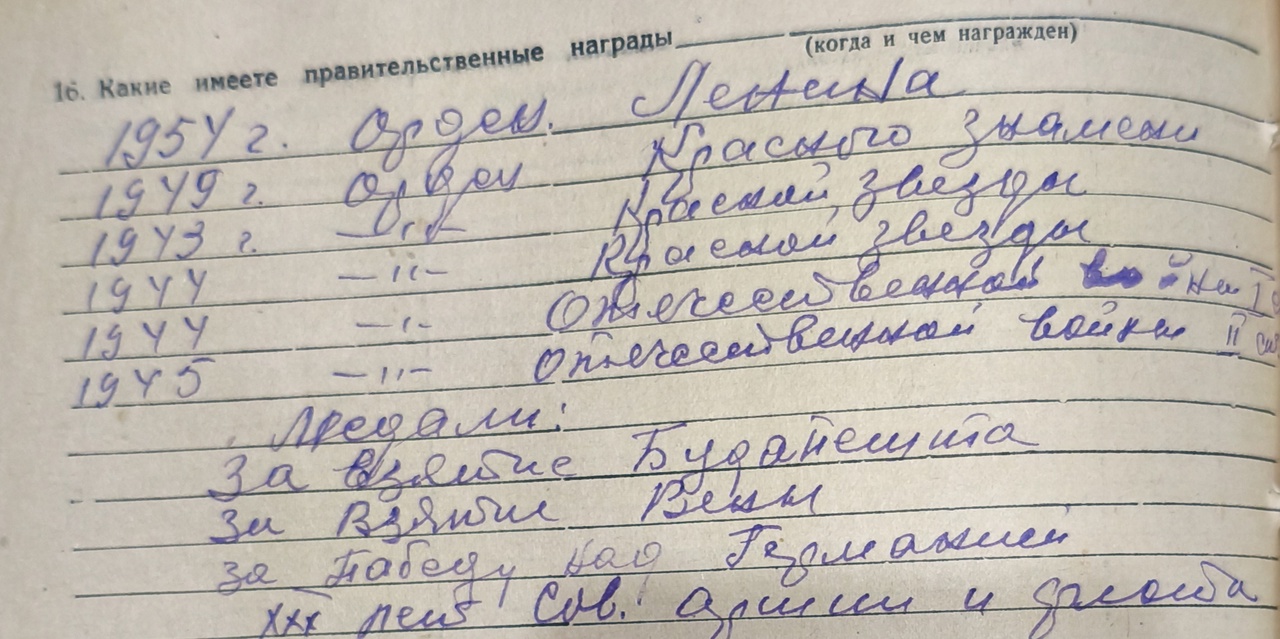 16. Какие имеете правительственные награды
(когда и чем награжден)
1954 г. Орден. Ленина
1949 г. Орден Красного знамени
1943 г. —"— Красной звезды
1944 —"— Красной звезды
1944 —"— Отечественной войны I
1945 —"— Отечественной войны II ст
Медали:
За взятие Будапешта
За Взятие Вены
за Победу над Германией
XXX лет Сов. армии и флота